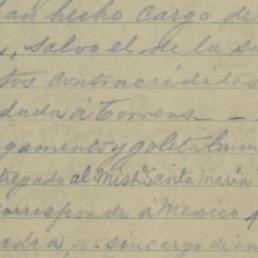 han hecho cargo de
, salvo el de la
tos contracréditos
dada á Torrens
gamento y goleta
tregado al Mistº Santa Maria
corresponde á Mexico
adra, sin cargo de